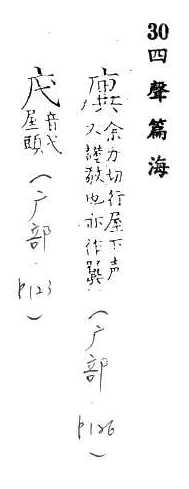 30 四聲篇海
余力切行屋下声
又謹敬也亦作
(广部 p126)
音弋
屋頭
(广部 p123)